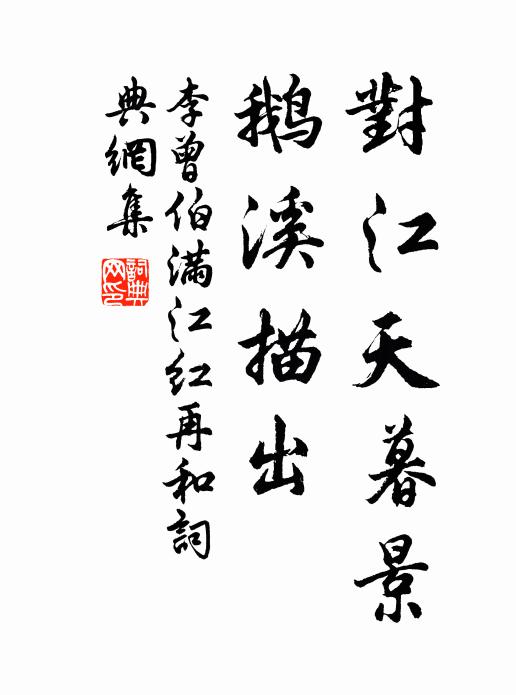 對江天暮景
鵝溪描出
李曾伯滿江紅再和詞
典網集
詞典
网印